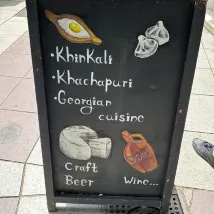 · Khinkali
· Khachapuri
· Georgian
cuisine
Craft
Beer
Wine...